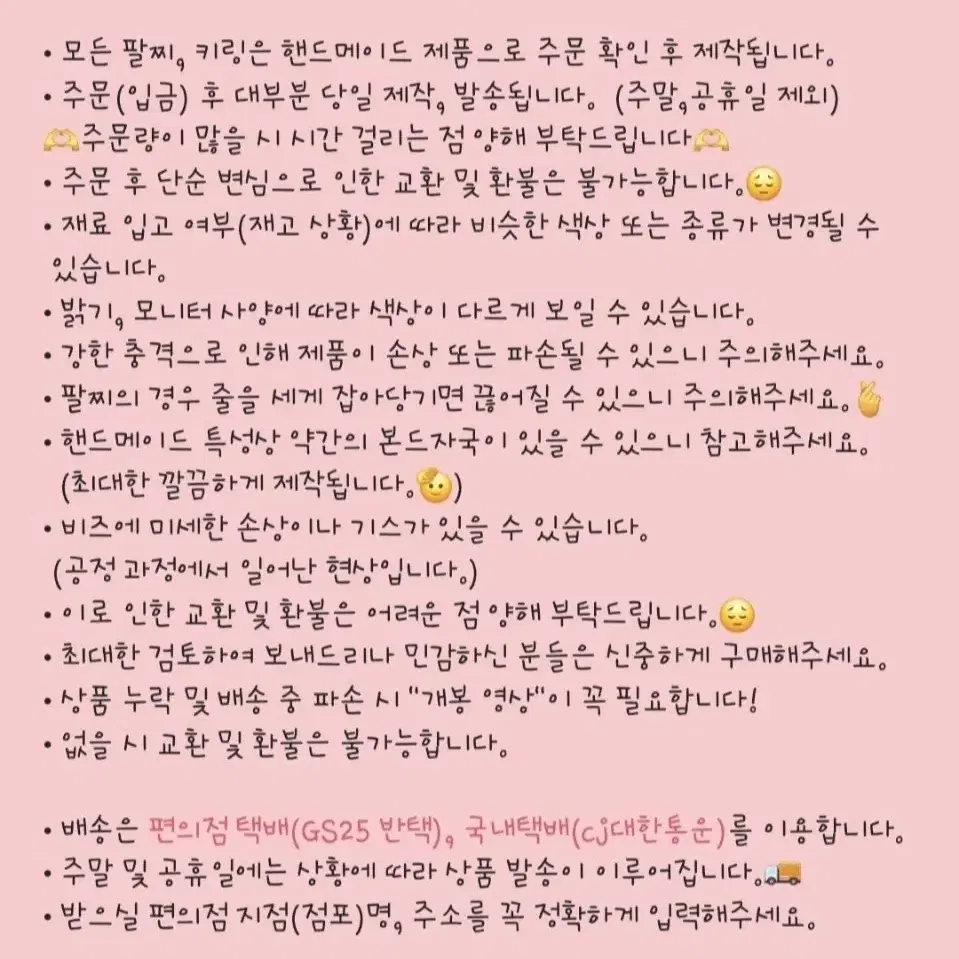 • 모든 팔찌, 키링은 핸드메이드 제품으로 주문 확인 후 제작됩니다.
• 주문(입금) 후 대부분 당일 제작, 발송됩니다. (주말,공휴일 제외)
🫶주문량이 많을 시 시간 걸리는 점 양해 부탁드립니다🫶
• 주문 후 단순 변심으로 인한 교환 및 환불은 불가능합니다.😔
• 재료 입고 여부(재고 상황)에 따라 비슷한 색상 또는 종류가 변경될 수
있습니다.
• 밝기, 모니터 사양에 따라 색상이 다르게 보일 수 있습니다.
• 강한 충격으로 인해 제품이 손상 또는 파손될 수 있으니 주의해주세요.
• 팔찌의 경우 줄을 세게 잡아당기면 끊어질 수 있으니 주의해주세요.🫰
• 핸드메이드 특성상 약간의 본드자국이 있을 수 있으니 참고해주세요.
(최대한 깔끔하게 제작됩니다.🫡)
• 비즈에 미세한 손상이나 기스가 있을 수 있습니다.
(공정 과정에서 일어난 현상입니다.)
• 이로 인한 교환 및 환불은 어려운 점 양해 부탁드립니다.😔
• 최대한 검토하여 보내드리나 민감하신 분들은 신중하게 구매해주세요.
• 상품 누락 및 배송 중 파손 시 "개봉 영상"이 꼭 필요합니다!
• 없을 시 교환 및 환불은 불가능합니다.
• 배송은 편의점택배(GS25 반택), 국내택배(cj대한통운)를 이용합니다.
• 주말 및 공휴일에는 상황에 따라 상품 발송이 이루어집니다.🚚
• 받으실 편의점 지점(점포)명, 주소를 꼭 정확하게 입력해주세요.